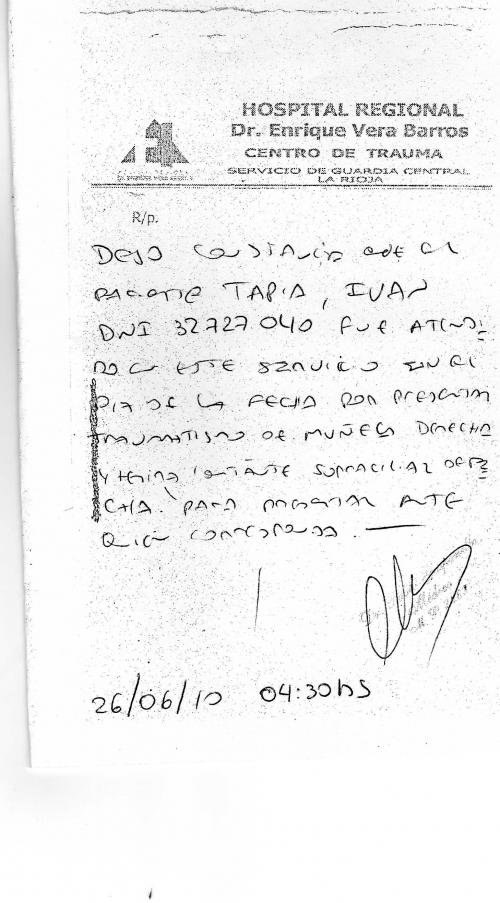 HOSPITAL REGIONAL
Dr. Enrique Vera Barros
CENTRO DE TRAUMA
SERVICIO DE GUARDIA CENTRAL
LA RIOJA
R/p.
DEJO CONSTANCIA QUE EL
PACIENTE TAPIA, IVAN
DNI 32.727.040 FUE ATENDI
DO EN ESTE SERVICIO EN EL
DIA DE LA FECHA POR PRESENTAR
TRAUMATISMO DE MUÑECA DERECHA
Y HERIDA CORTANTE SUPRACILIAR DERE
CHA. PARA PRESENTAR ANTE
QUIEN CORRESPONDA.
26/06/10 04:30hs